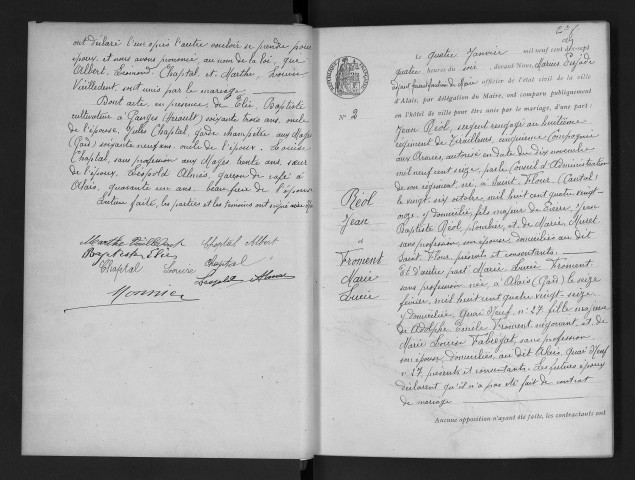 ont déclaré l'un après l'autre vouloir se prendre pour
époux et nous avons prononcé, au nom de la loi, que
Albert, Edmond Chaptal et Marthe, Louise
Vielledent, sont unis par le mariage.
Dont acte, en présence de Elie, Baptiste
cultivateur à Ganges (Hérault) soixante trois ans, oncle
de l'épouse, Jules Chaptal, garde champêtre aux Mages
(Gard) soixante neuf ans, oncle de l'époux, Louise
Chaptal, sans profession aux Mages, trente ans, sœur
de l'époux, Léopold Almès, garçon de café à
Alais, quarante un ans, beau-frère de l'époux
Lecture faite, les parties et les témoins ont signé avec Nous
Marthe Vielledent Chaptal Albert
Baptiste Elie
Chaptal Louise Chaptal
Léopold Almès
Monnier
N° 2
Réol
Jean
et
Froment
Marie
Lucie
Le quatre Janvier mil neuf cent dix-sept
quatre heures du soir, devant Nous,
adjoint faisant fonction de Maire officier de l'état civil de la ville
d'Alais, par délégation du Maire, ont comparu publiquement
en l'hôtel de ville pour être unis par le mariage, d'une part:
Jean Réol, sergent rengagé au huitième
régiment de Tirailleurs, cinquième Compagnie
aux Armées, autorisé en date du dix novembre
mil neuf cent seize, par le Conseil d'Administration
de son régiment, né à Saint Flour (Cantal)
le vingt-six octobre, mil huit cent quatre vingt-
onze, y domicilié, fils majeur de Pierre, Jean
Baptiste Réol, et de Marie, Muret
sans profession, son épouse, domiciliés au dit
Saint Flour, présents et consentants.
Et d'autre part Marie Lucie Froment,
sans profession, née à Alais (Gard) le seize
février, mil huit cent quatre vingt-seize,
y domiciliée, Quai Neuf, n° 27, fille majeure
de Adolphe, Emile Froment, négociant et de
Marie Louise Fabrégat, sans profession
son épouse, domiciliés, au dit Alais, Quai Neuf
n° 27 présents et consentants. Les futurs époux
déclarent qu'il n'a pas été fait de contrat
de mariage
Aucune opposition n'ayant été faite, les contractants ont